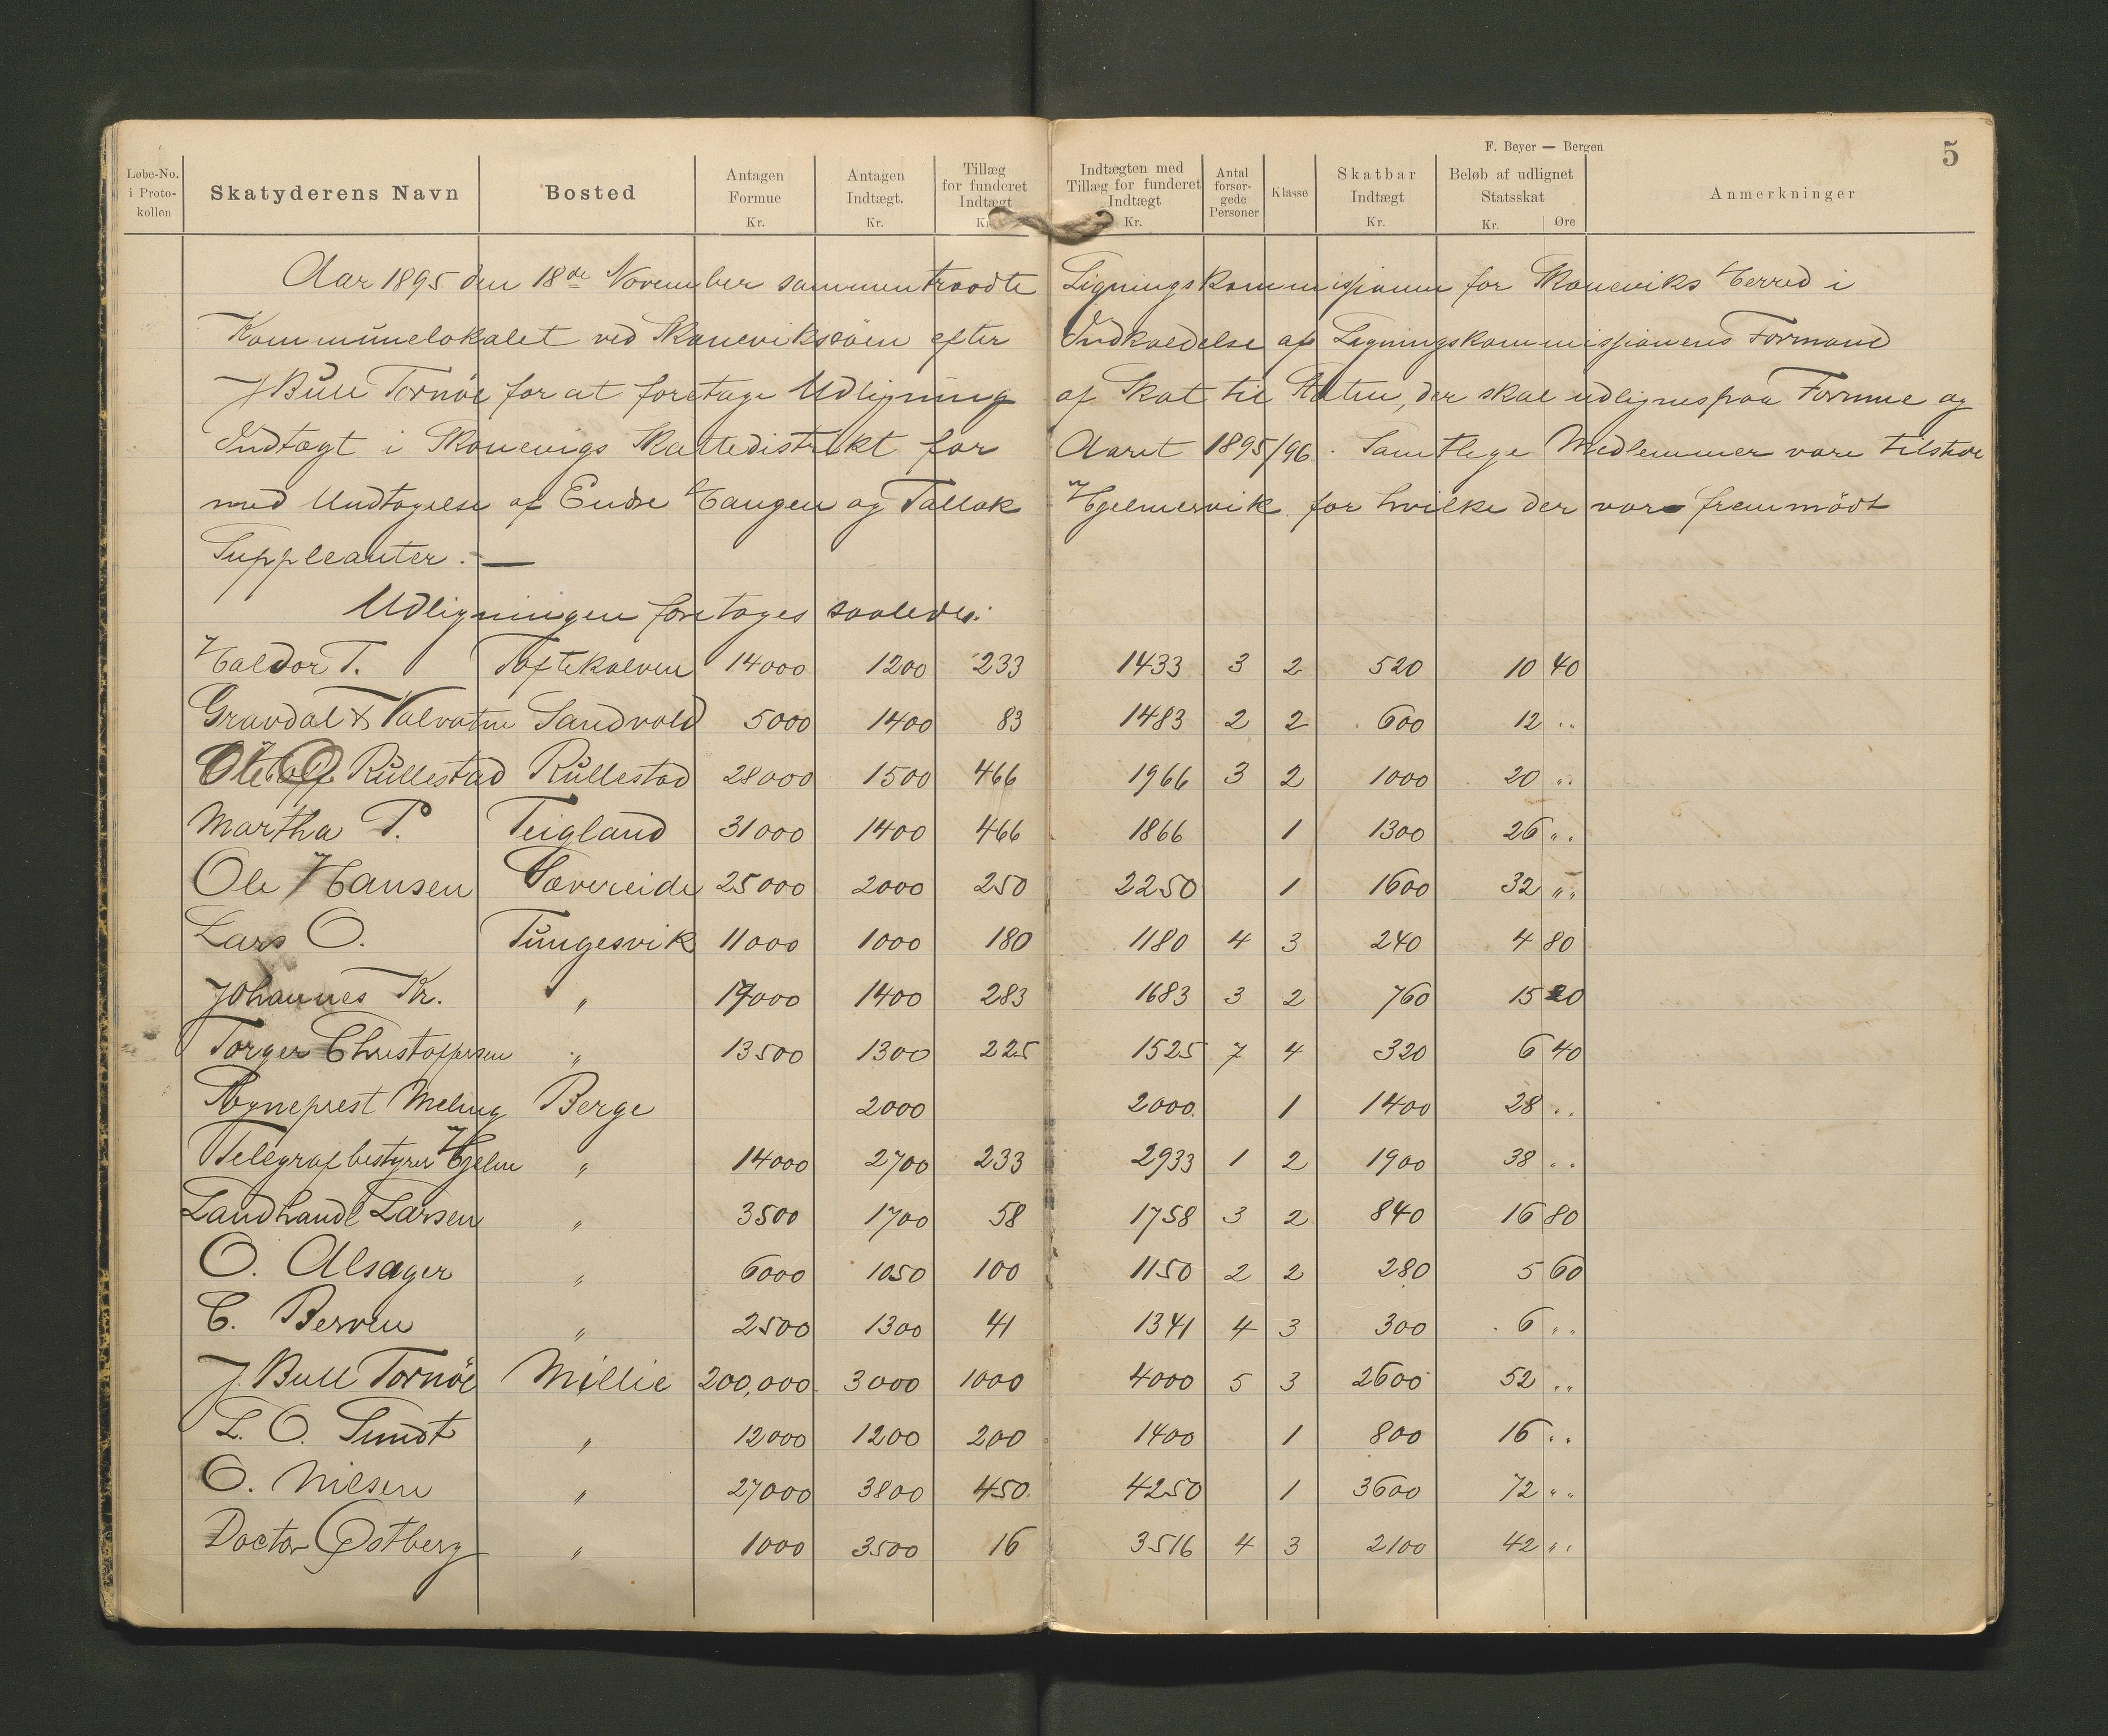 F. Beyer — Bergen
5
Løbe-No. i Proto- kollen | Skatyderens Navn | Bosted | Antagen Formue Kr. | Antagen Indtægt. Kr. | Tillæg for funderet Indtægt Kr. | Indtægten med Tillæg for funderet Indtægt Kr. | Antal forsør- gede Personer | Klasse | Skatbar Indtægt Kr. | Beløb af udlignet Statsskat Kr. Øre | Anmerkninger
Aar 1895 den 18de November sammentraadte Ligningskommissionen for Skaneviks Herred i
Kommunelokalet ved Skanevikssöen efter Indkaldelse af Ligningskommissionens Formand
J Bull Tornöe for at foretage Udligning af Skat til Staten, der skal udlignes paa Formue og
Indtægt i Skonevigs Skattedistrikt for Aaret 1895/96. Samtlige Medlemmer vare tilstede
med Undtagelse af Endre Haugen og Tallak Hjelmervik for hvilke der var fremmödt
Suppleanter. —
Udligningen foretages saaledes:
Haldor T. Toftekalven 14000 1200 233 1433 3 2 520 10 40
Gravdal & Valvatne Sandvold 5000 1400 83 1483 2 2 600 12 ..
Ole Rullestad Rullestad 28000 1500 466 1966 3 2 1000 20 ..
Martha P. Teigland 31000 1400 466 1866 1 1300 26 ..
Ole Hansen Sævereide 25000 2000 250 2250 1 1600 32 ..
Lars O. Tungesvik 11000 1000 180 1180 4 3 240 4 80
Johannes Kr. " 17000 1400 283 1683 3 2 760 15 20
Torger Christoffersen " 13500 1300 225 1525 7 4 320 6 40
Sogneprest Meling Berge 2000 2000 1 1400 28 ..
Telegrafbestyrer Hjelm " 14000 2700 233 2933 1 2 1900 38 ..
Landhandl Larsen " 3500 1700 58 1758 3 2 840 16 80
O. Alsager " 6000 1050 100 1150 2 2 280 5 60
C. Berven " 2500 1300 41 1341 4 3 300 6 ..
J. Bull Tornöe Millie 200,000 3000 1000 4000 5 3 2600 52 ..
L. O. Sundt " 12000 1200 200 1400 1 800 16 ..
O. Nilsen " 27000 3800 450 4250 1 3600 72 ..
Doctor Østberg " 1000 3500 16 3516 4 3 2100 42 ..